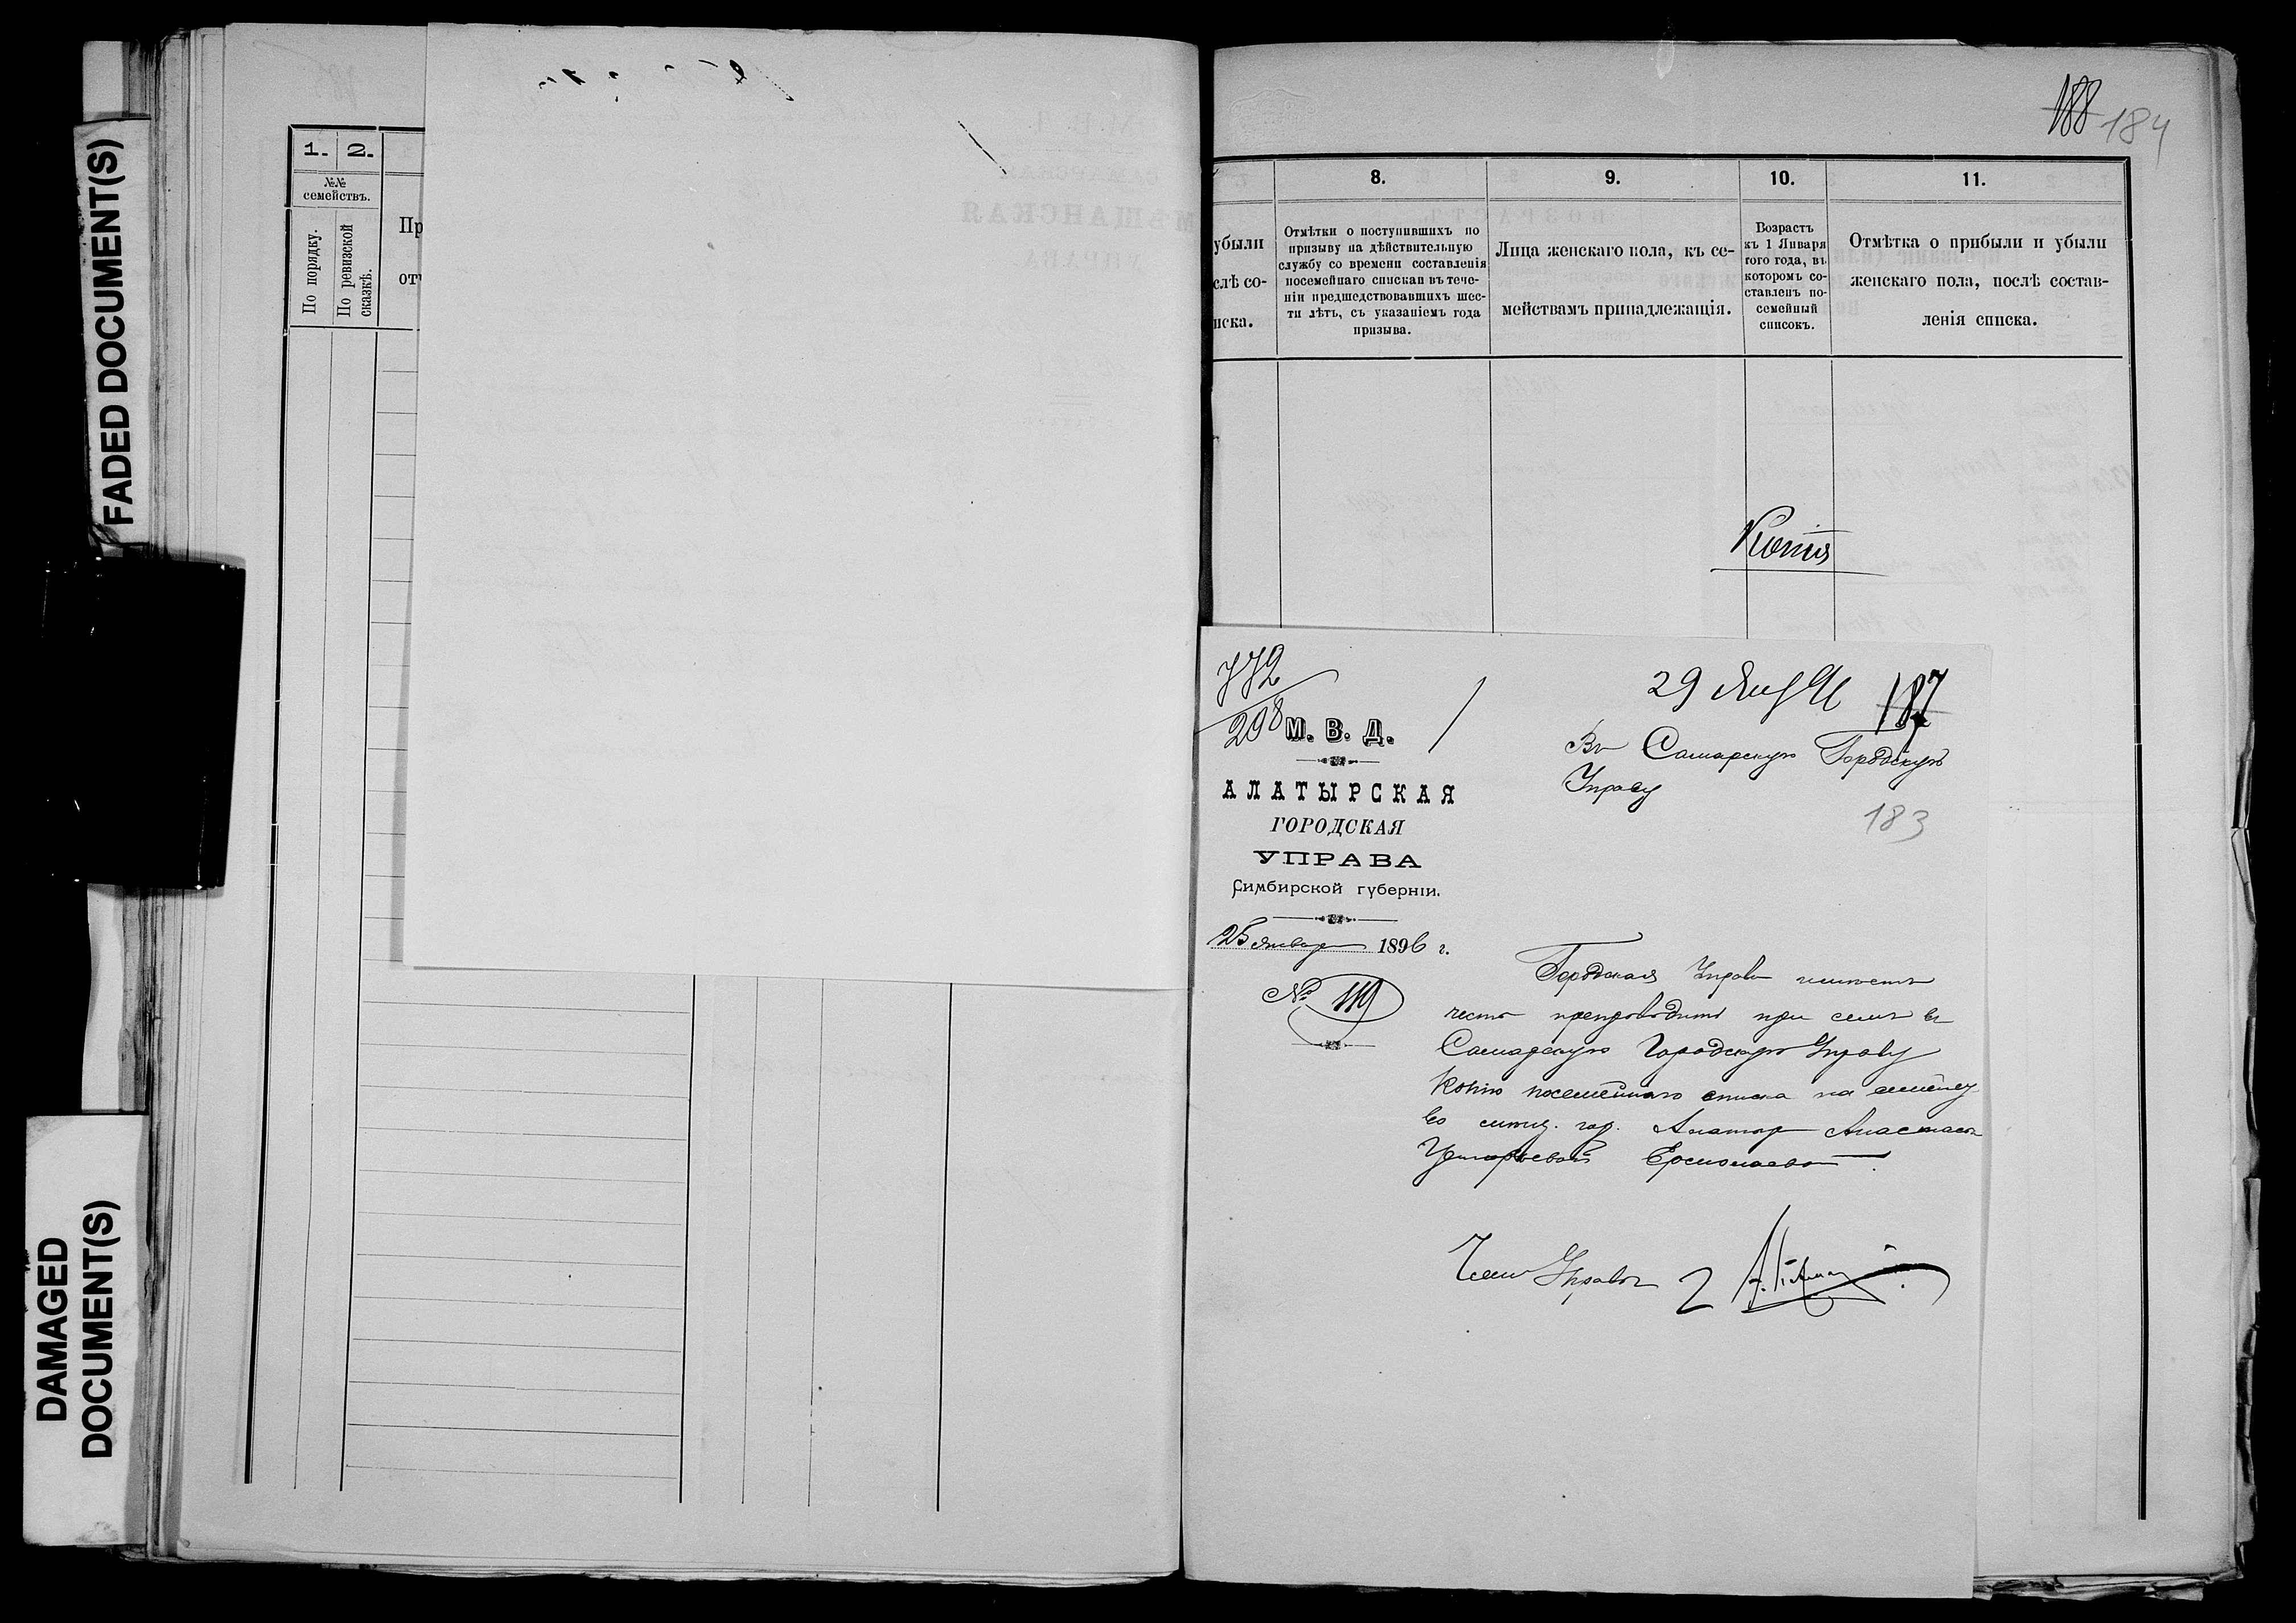 FADED DOCUMENT(S)
DAMAGED
DOCUMENT(S)
1.
2.
№№
семействъ.
По порядку.
По ревизской
сказкѣ.
Пр
от
188 184
8.
9.
10.
11.
убыли
слѣ со-
иска.
Отмѣтки о поступившихъ по
призыву на дѣйствительную
службу со времени составленія
посемейнаго спискаи въ тече-
ніи предшедствовавшихъ шес-
ти лѣтъ, съ указаніемъ года
призыва.
Лица женскаго пола, къ се-
мействамъ принадлежащія.
Возрастъ
къ 1 Января
того года, въ
которомъ со-
ставленъ по-
семейный
списокъ.
Отмѣтка о прибыли и убыли
женскаго пола, послѣ состав-
ленія списка.
Копія
772
298
29 Янв 96
187
М. В. Д.
АЛАТЫРСКАЯ
ГОРОДСКАЯ
УПРАВА
Симбирской губерніи.
25 января 1896 г.
№ 119
Въ Самарскую Городскую
Управу
183
Городская Управа имѣетъ
честь препроводить при семъ въ
Самарскую Городскую Управу
копію посемейнаго списка на
гор.
Членъ Управы